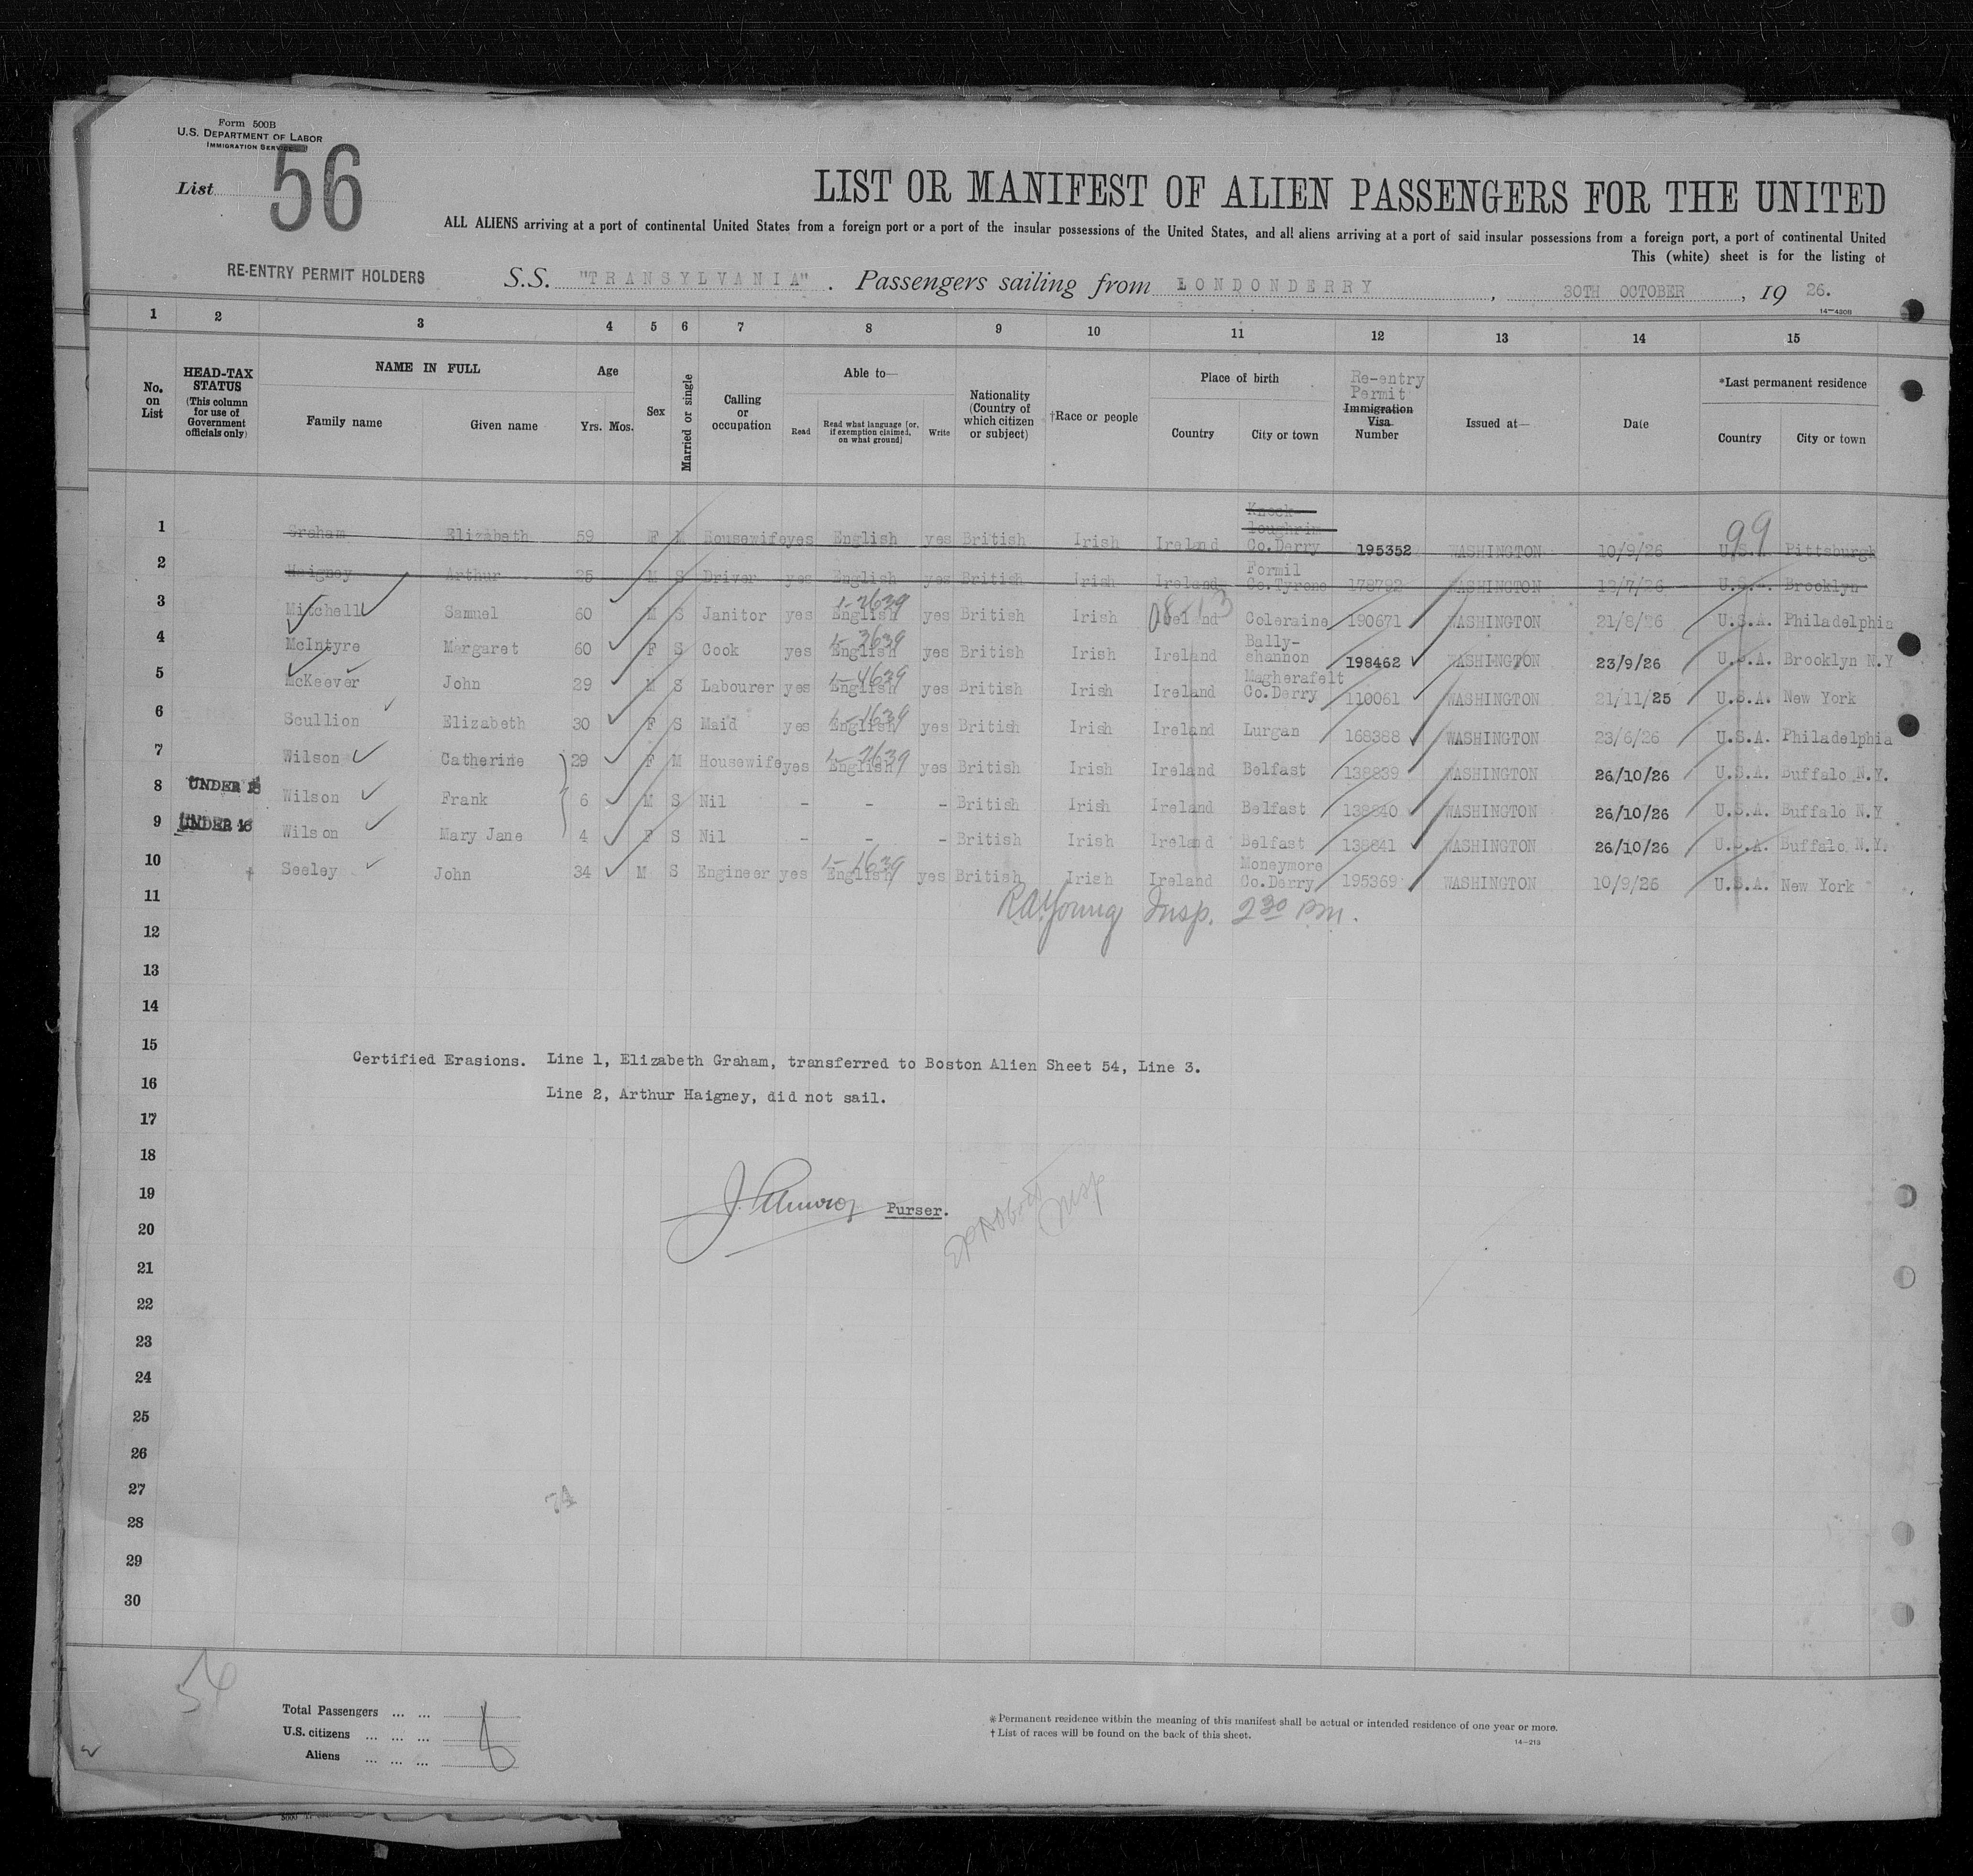 Form 500B
U.S. DEPARTMENT OF LABOR
IMMIGRATION SERVICE
List 56
LIST OR MANIFEST OF ALIEN PASSENGERS FOR THE UNITED
ALL ALIENS arriving at a port of continental United States from a foreign port or a port of the insular possessions of the United States, and all aliens arriving at a port of said insular possessions from a foreign port, a port of continental United
This (white) sheet is for the listing of
RE-ENTRY PERMIT HOLDERS S.S. "TRANSYLVANIA". Passengers sailing from LONDONDERRY, 30TH OCTOBER, 19 26.
14—430B
1 2 3 4 5 6 7 8 9 10 11 12 13 14 15
No. on List
HEAD-TAX STATUS (This column for use of Government officials only)
NAME IN FULL
Family name Given name
Age
Yrs. Mos.
Sex
Married or single
Calling or occupation
Able to—
Read
Read what language [or, if exemption claimed, on what ground]
Write
Nationality (Country of which citizen or subject)
†Race or people
Place of birth
Country City or town
Re-entry Permit
Immigration Visa Number
Issued at—
Date
*Last permanent residence
Country City or town
Knock-
loughrim
1 Graham Elizabeth 59 F M Housewife yes English yes British Irish Ireland Co.Derry 195352 WASHINGTON 10/9/26 U.S.A. Pittsburgh
99
Formil
2 Haigney Arthur 25 M S Driver yes English yes British Irish Ireland Co.Tyrone 178792 WASHINGTON 12/7/26 U.S.A. Brooklyn
3 Mitchell Samuel 60 M S Janitor yes English yes British Irish Ireland Coleraine 190671 WASHINGTON 21/8/26 U.S.A. Philadelphia
Bally-
4 McIntyre Margaret 60 F S Cook yes English yes British Irish Ireland shannon 198462 WASHINGTON 23/9/26 U.S.A. Brooklyn N.Y
Magherafelt
5 McKeever John 29 M S Labourer yes English yes British Irish Ireland Co.Derry 110061 WASHINGTON 21/11/25 U.S.A. New York
6 Scullion Elizabeth 30 F S Maid yes English yes British Irish Ireland Lurgan 168388 WASHINGTON 23/6/26 U.S.A. Philadelphia
7 Wilson Catherine 29 F M Housewife yes English yes British Irish Ireland Belfast 138839 WASHINGTON 26/10/26 U.S.A. Buffalo N.Y.
8 UNDER 16 Wilson Frank 6 M S Nil - - - British Irish Ireland Belfast 138840 WASHINGTON 26/10/26 U.S.A. Buffalo N.Y
9 UNDER 16 Wilson Mary Jane 4 F S Nil - - - British Irish Ireland Belfast 138841 WASHINGTON 26/10/26 U.S.A. Buffalo N.Y.
Moneymore
10 Seeley John 34 M S Engineer yes English yes British Irish Ireland Co.Derry 195369 WASHINGTON 10/9/26 U.S.A. New York
11 R.A. Young Insp. 2 30 P.M.
12
13
14
15 Certified Erasions. Line 1, Elizabeth Graham, transferred to Boston Alien Sheet 54, Line 3.
16 Line 2, Arthur Haigney, did not sail.
17
18
19 Purser.
20
21
22
23
24
25
26
27
28
29
30
Total Passengers ... ...
U.S. citizens ... ... ...
Aliens ... ... ...
* Permanent residence within the meaning of this manifest shall be actual or intended residence of one year or more.
† List of races will be found on the back of this sheet.
14—213